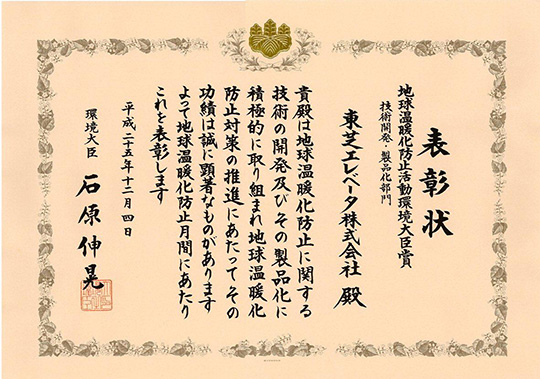 表彰状
地球温暖化防止活動環境大臣賞
技術開発・製品化部門
東芝エレベータ株式会社 殿
貴殿は地球温暖化防止に関する
技術の開発及びその製品化に
積極的に取り組まれ地球温暖化
防止対策の推進にあたってその
功績は誠に顕著なものがあります
よって地球温暖化防止月間にあたり
これを表彰します
平成二十五年十二月四日
環境大臣 石原伸晃